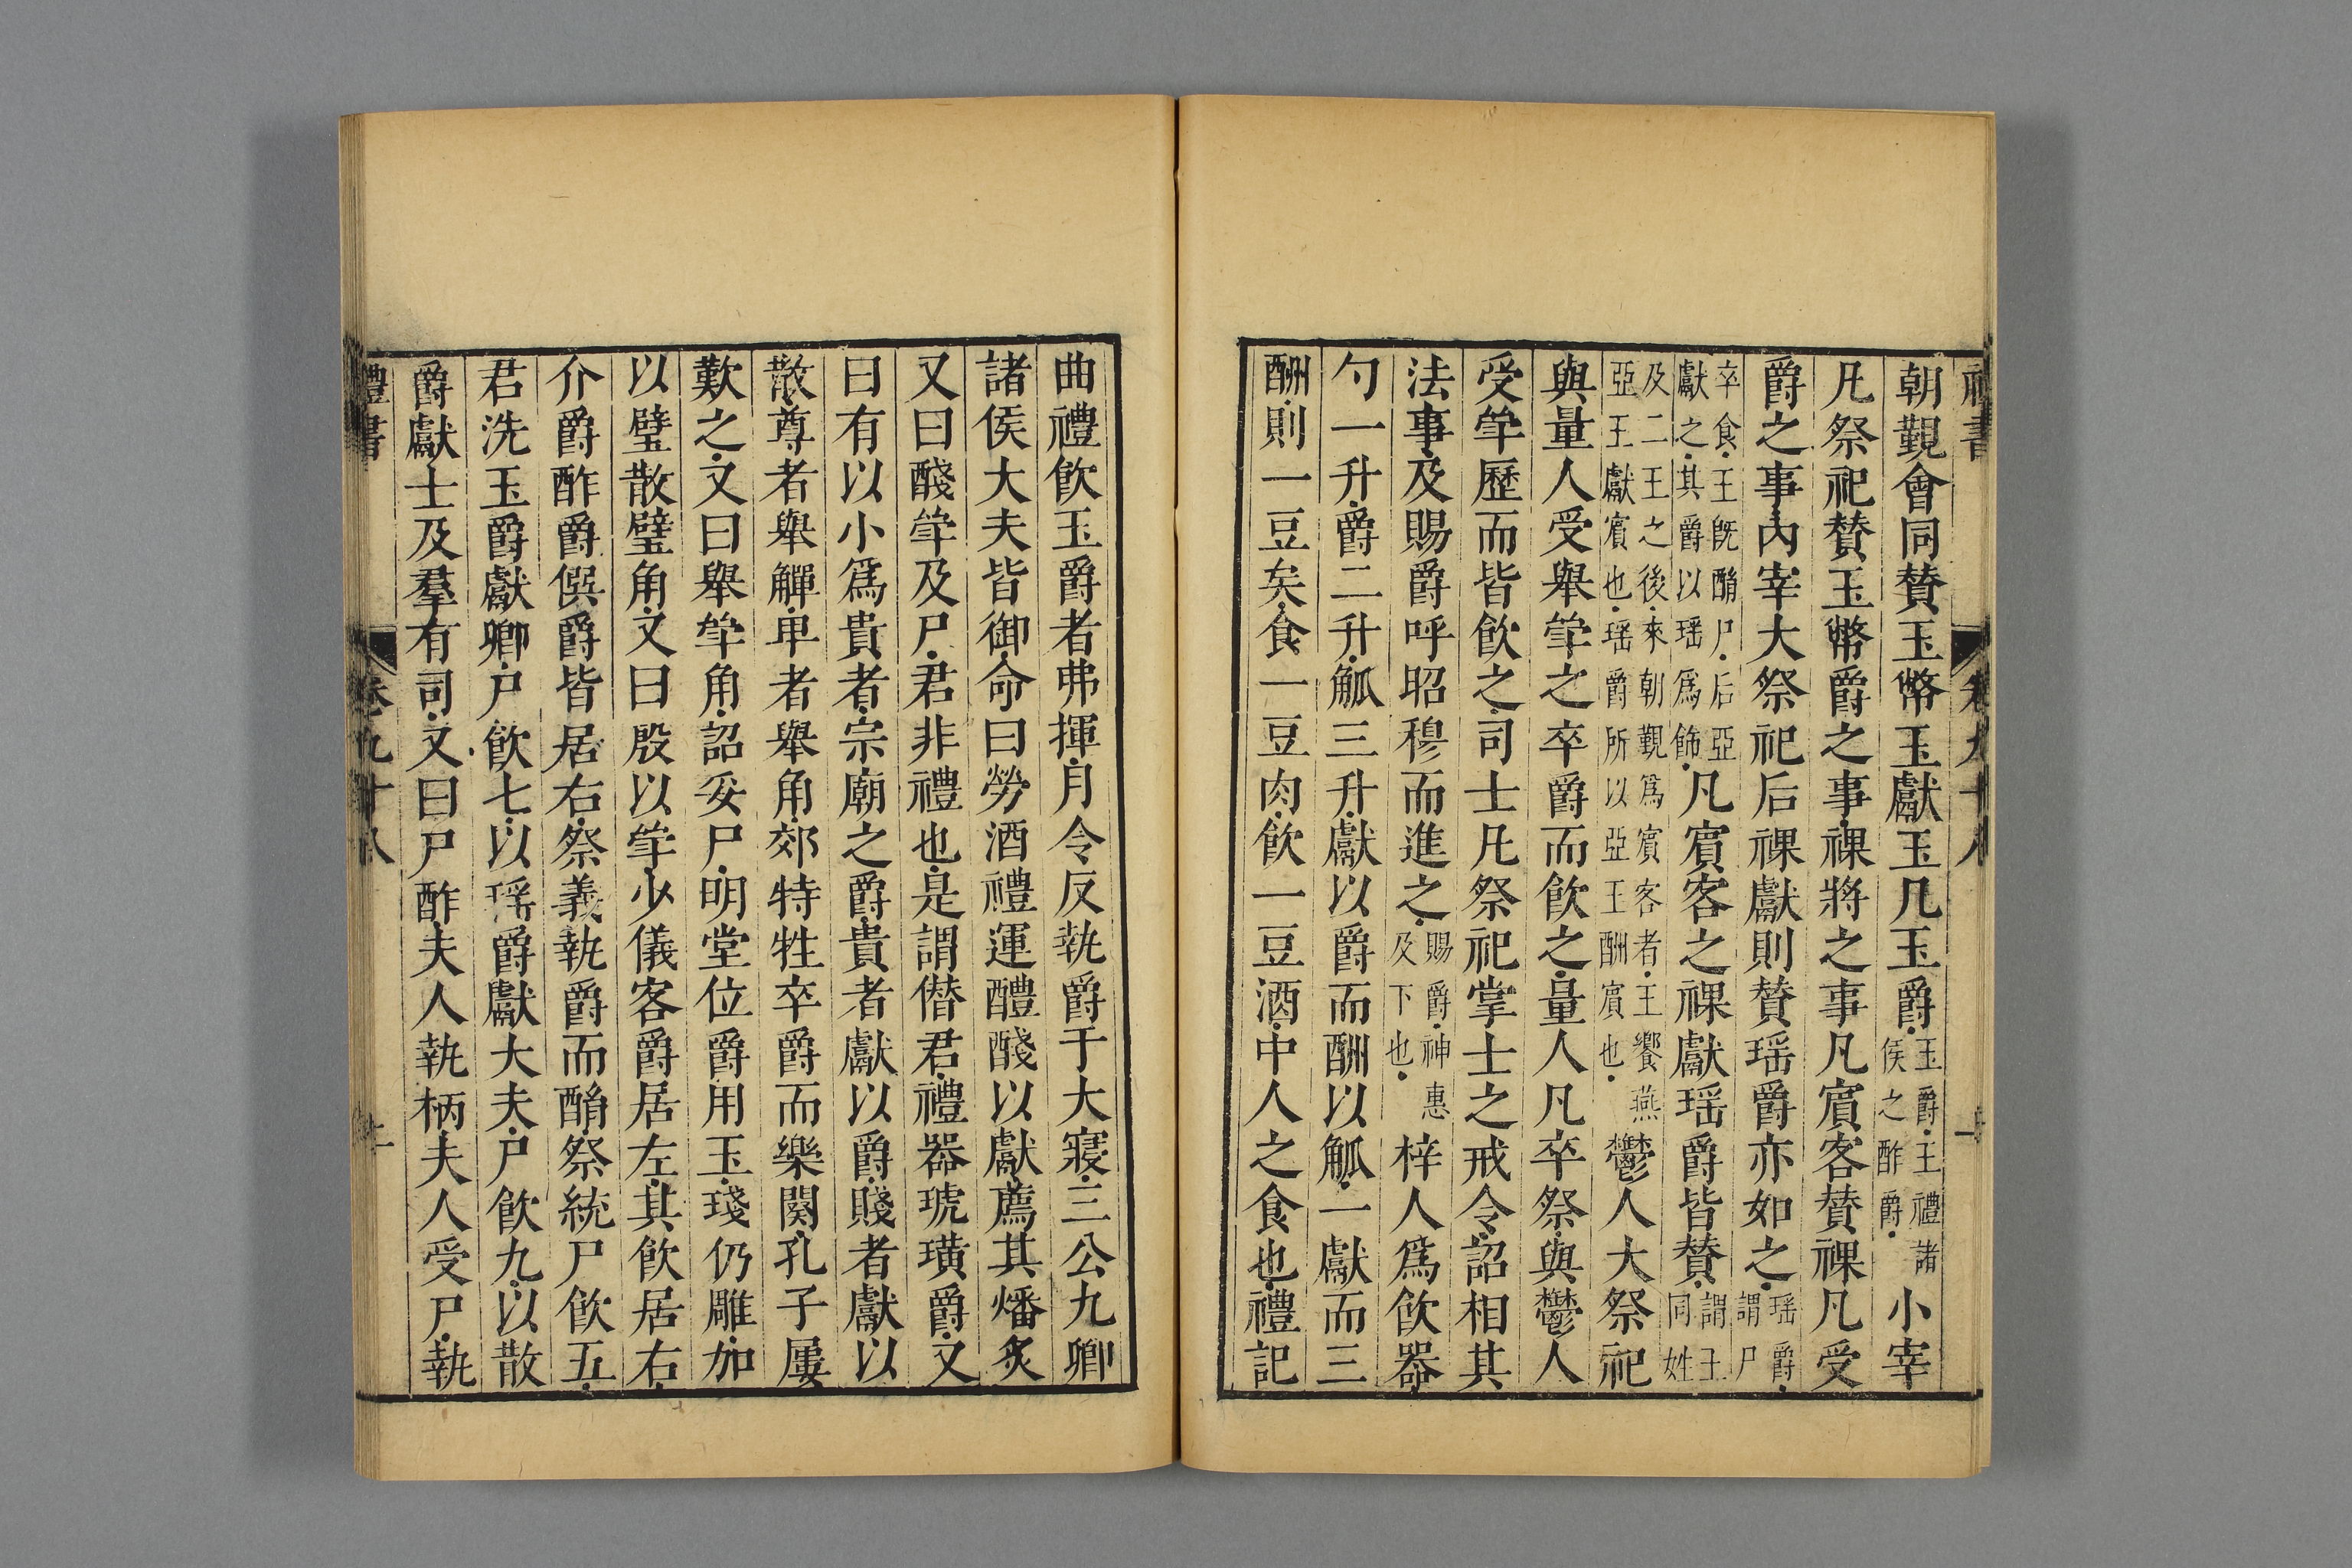 禮書 卷九十八
朝覲會同贊玉幣玉獻玉几玉爵玉爵王禮諸侯之酢爵小宰
凡祭祀贊玉幣爵之事祼將之事凡賓客贊祼凡受
爵之事內宰大祭祀后祼獻則贊瑤爵亦如之瑤爵謂尸
卒食王既酳尸后亞獻之其爵以瑤爲飾凡賓客之祼獻瑤爵皆贊謂王同姓
及二王之後來朝覲爲賓客者王饗燕亞王獻賓也瑤爵所以亞王酬賓也鬱人大祭祀
與量人受舉斝之卒爵而飲之量人凡卒祭與鬱人
受斝歷而皆飲之司士凡祭祀掌士之戒令詔相其
法事及賜爵呼昭穆而進之賜爵神惠及下也梓人爲飲器
勺一升爵二升觚三升獻以爵而酬以觚一獻而三
酬則一豆矣食一豆肉飲一豆酒中人之食也禮記
曲禮飲玉爵者弗揮月令反執爵于大寢三公九卿
諸侯大夫皆御命曰勞酒禮運醴醆以獻薦其燔炙
又曰醆斝及尸君非禮也是謂僭君禮器琥璜爵又
曰有以小爲貴者宗廟之爵貴者獻以爵賤者獻以
散尊者舉觶卑者舉角郊特牲卒爵而樂闋孔子屢
歎之又曰舉斝角詔妥尸明堂位爵用玉琖仍雕加
以璧散璧角又曰殷以斝少儀客爵居左其飲居右
介爵酢爵僎爵皆居右祭義執爵而酳祭統尸飲五
君洗玉爵獻卿尸飲七以瑤爵獻大夫尸飲九以散
爵獻士及羣有司又曰尸酢夫人執柄夫人受尸執
禮書 卷九十八